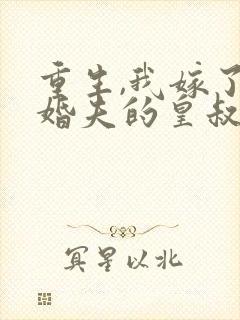 重生,我嫁了
婚夫的皇叔
冥星以北